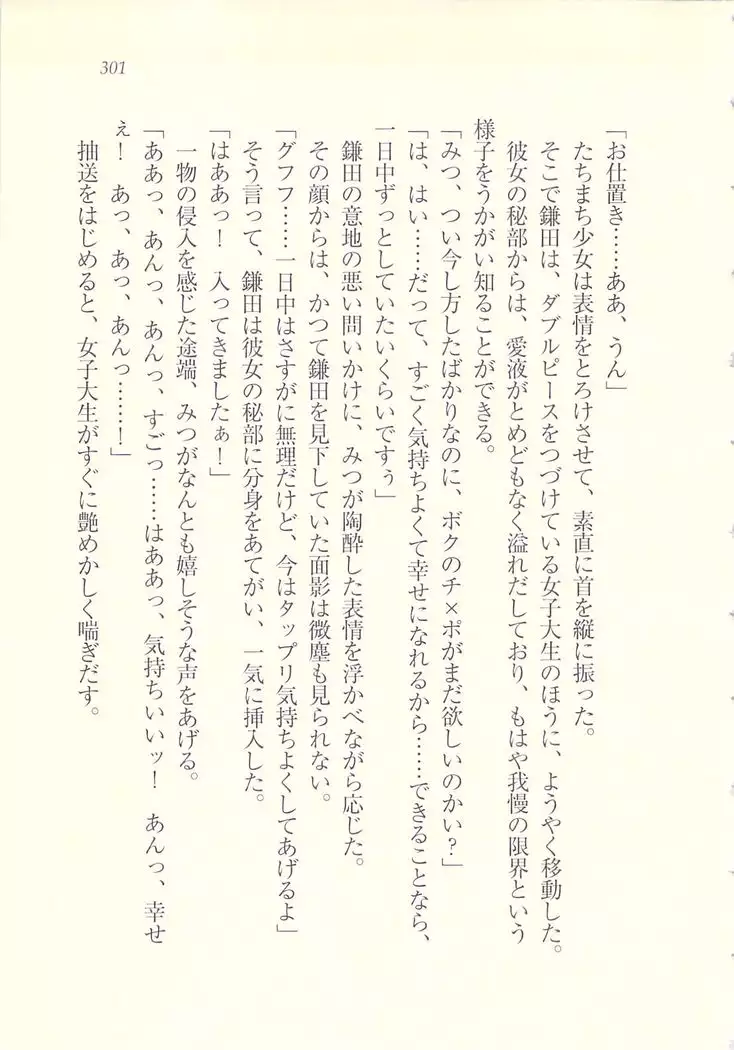 301
「お仕置き……ああ、うん」
たちまち少女は表情をとろけさせて、素直に首を縦に振った。
そこで鎌田は、ダブルピースをつづけている女子大生のほうに、ようやく移動した。
彼女の秘部からは、愛液がとめどもなく溢れだしており、もはや我慢の限界という
様子をうかがい知ることができる。
「みつ、つい今し方したばかりなのに、ボクのチ×ポがまだ欲しいのかい？」
「は、はい……だって、すごく気持ちよくて幸せになれるから……できることなら、
一日中ずっとしていたいくらいですぅ」
鎌田の意地の悪い問いかけに、みつが陶酔した表情を浮かべながら応じた。
その顔からは、かつて鎌田を見下していた面影は微塵も見られない。
「グフフ……一日中はさすがに無理だけど、今はタップリ気持ちよくしてあげるよ」
そう言って、鎌田は彼女の秘部に分身をあてがい、一気に挿入した。
「はああっ！　入ってきましたぁ！」
一物の侵入を感じた途端、みつがなんとも嬉しそうな声をあげる。
「ああっ、あんっ、あんっ、すごっ……はああっ、気持ちいいッ！　あんっ、幸せ
ぇ！　あっ、あっ、あんっ……！」
抽送をはじめると、女子大生がすぐに艶めかしく喘ぎだす。